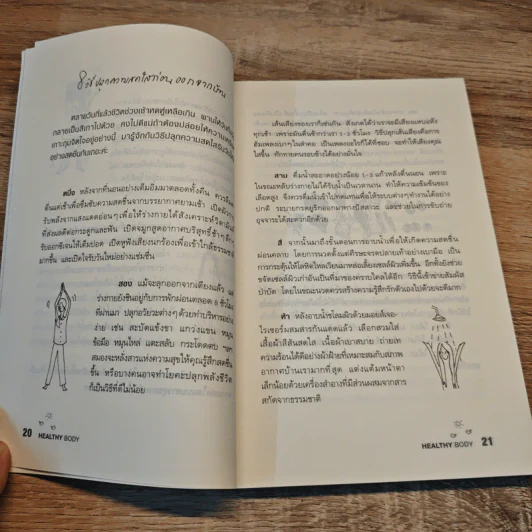 วิธีปลุกความสดใสก่อนออกจากบ้าน
หลายวันที่แล้วชีวิตช่วงเช้าคงดูเหลือเกิน
กลายเป็นสีเทาไปด้วย คงไม่ดีแน่ถ้าต้องปล่อยให้ความ
เกาะกุมจิตใจอยู่อย่างนี้ มารู้จักกับวิธีปลุกความสดใสรับวัน
อย่างสดชื่นกันเถอะค่ะ
หนึ่ง หลังจากที่นอนอย่างเต็มอิ่มมาตลอดทั้งคืน ควรตื่น
ตื่นแต่เช้าเพื่อรับความสดชื่นจากบรรยากาศยามเช้า เปิดตัว
รับพลังจากแสงแดดอ่อนๆ เพื่อให้ร่างกายได้สังเคราะห์วิตามิน
ที่ส่งผลดีต่อกระดูกและฟัน เปิดจมูกสูดอากาศบริสุทธิ์ช้าๆ
รับออกซิเจนให้เต็มปอด เปิดหูฟังเสียงนกร้องเพื่อเข้าใกล้ธรรมชาติ
มากขึ้น และเปิดใจรับวันใหม่อย่างแช่มชื่น
สอง แม้จะลุกออกจากเตียงแล้ว แต่
ร่างกายยังชินอยู่กับการพักผ่อนตลอด 8 ชั่วโมง
ที่ผ่านมา ปลุกอวัยวะต่างๆ ด้วยท่าบริหารอย่าง
ง่าย เช่น สะบัดแข้งขา แกว่งแขน หมุน
ข้อมือ หมุนไหล่ และสลับ กระโดดตบ ฯลฯ
สมองจะหลั่งสารแห่งความสุขให้คุณรู้สึกสดชื่น
ขึ้น หรือบางคนอาจทำโยคะปลุกพลังชีวิต
ก็เป็นวิธีที่ดีไม่น้อย
20 HEALTHY BODY
เส้นเสียงของเราก็เช่นกัน สังเกตได้ว่าเราจะมีเสียงแหบแห้ง
ทุกเช้า เพราะมันตื่นช้ากว่าเรา 1-2 ชั่วโมง วิธีปลุกเส้นเสียงคือการ
ฮัมเพลงเบาๆ ในลำคอ เป็นเพลงอะไรก็ได้ที่ชอบ จะทำให้เสียงคุณ
ใสขึ้น ทักทายคนรอบข้างได้อย่างมั่นใจ
สาม ดื่มน้ำสะอาดอย่างน้อย 1-2 แก้วหลังตื่นนอน เพราะ
ในขณะหลับร่างกายไม่ได้รับน้ำเป็นเวลานาน ทำให้ความเข้มข้นของ
เลือดสูง จึงควรดื่มน้ำเข้าไปทดแทนเพื่อให้ระบบต่างๆ ทำงานได้อย่าง
ปกติ ระบายกรดยูริกออกมาทางปัสสาวะ และช่วยในการขับถ่าย
อุจจาระได้สะดวกอีกด้วย
สี่ จากน้ำมาถึงขั้นตอนการอาบน้ำเพื่อให้เกิดความสดชื่น
ผ่อนคลาย โดยการนวดตั้งแต่ศีรษะจรดปลายเท้าอย่างเบามือ เป็น
การกระตุ้นให้โลหิตไหลเวียนมาหล่อเลี้ยงเซลล์ผิวเต็มขึ้น อีกทั้งยังช่วย
ขจัดเซลล์ผิวเก่าอันเป็นที่มาของคราบไคลได้อีก วิธีนี้เข้าข่ายสัมผัส
บำบัด โดยในขณะนวดควรสร้างความรู้สึกรักตัวเองไปด้วยจะดีมาก
ห้า หลังอาบน้ำชโลมผิวด้วยมอยส์เจอ-
ไรเซอร์ผสมสารกันแดดแล้ว เลือกสวมใส่
เสื้อผ้าสีสันสดใส เนื้อผ้าเบาสบาย ถ่ายเท
ความร้อนได้ดีอย่างผ้าฝ้ายที่เหมาะสมกับสภาพ
อากาศบ้านเรามากที่สุด แต่งแต้มหน้าตา
เล็กน้อยด้วยเครื่องสำอางที่มีส่วนผสมจากสาร
สกัดจากธรรมชาติ
HEALTHY BODY 21